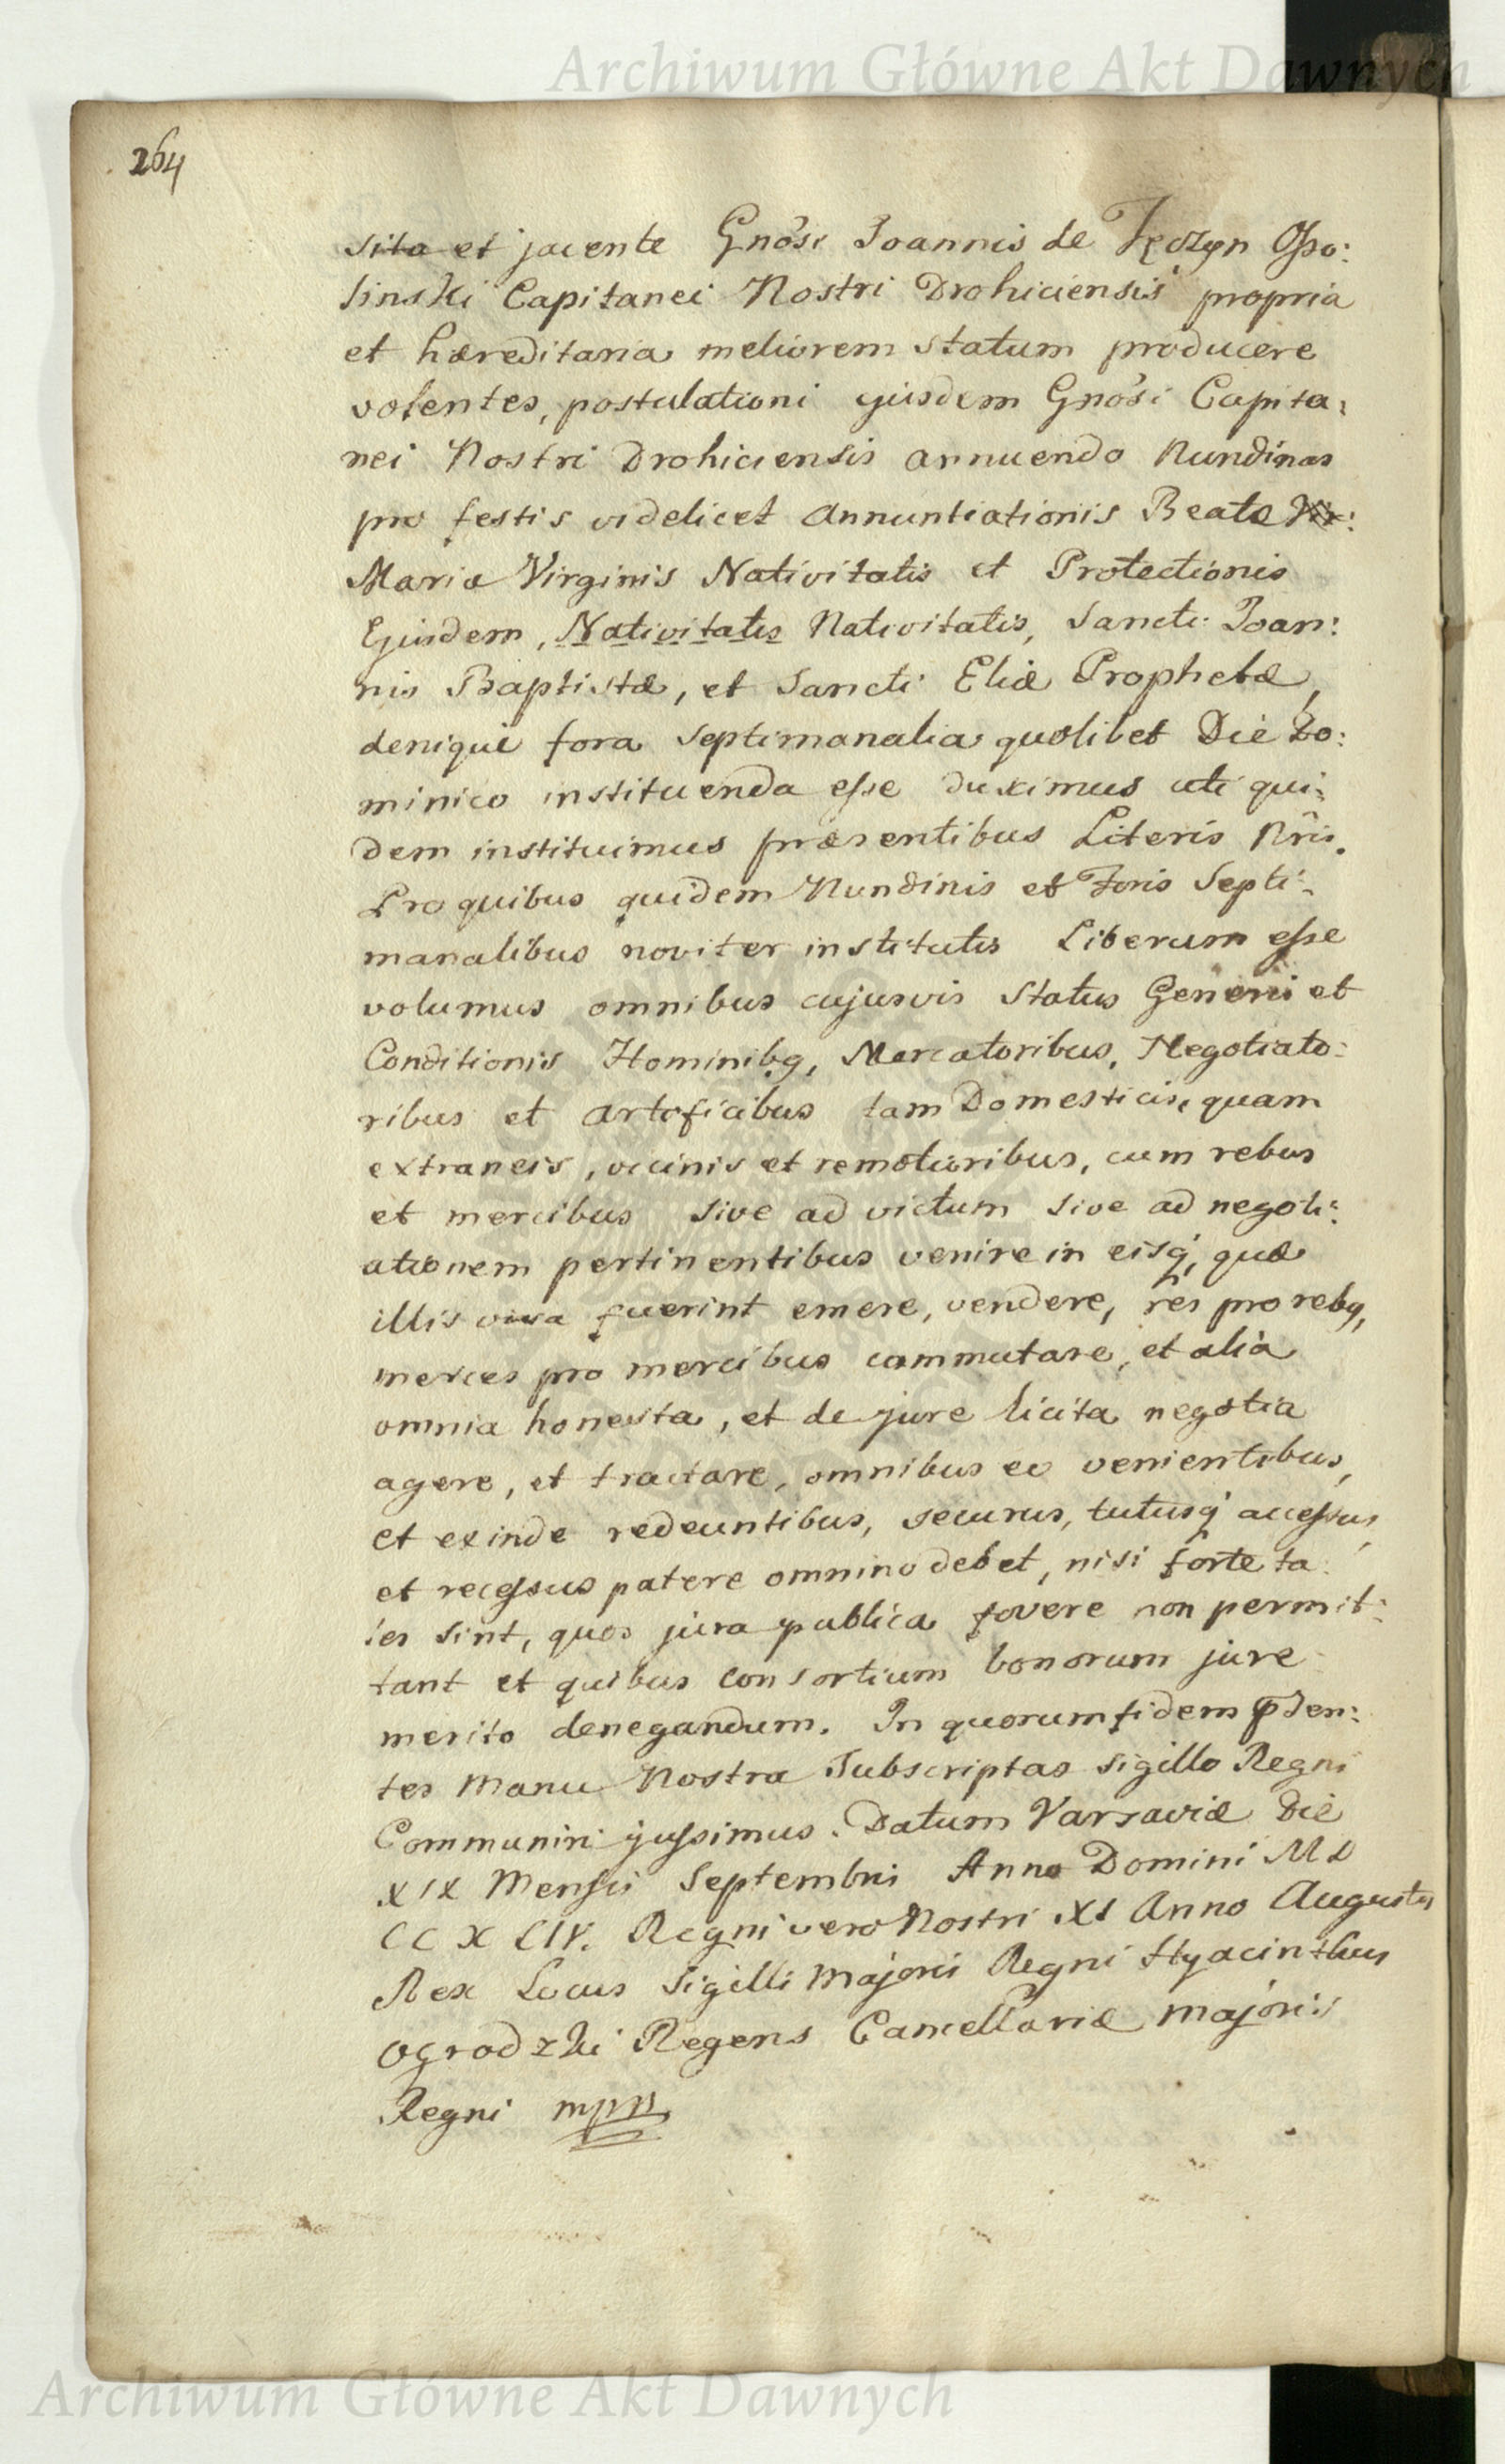 Archiwum Główne Akt Dawnych
264
sita et jacente Gnõsi Joannis de Tęczyn Osso:
linski Capitanei Nostri Drohiciensis propria
et hæreditaria meliorem statum producere
volentes, postulationi ejusdem Gnõsi Capita:
nei Nostri Drohiciensis annuendo Nundinas
pro festis videlicet Annuntiationis Beatæ Vir:
Mariæ Virginis Nativitatis et Protectionis
Ejusdem, Nativitatis Nativitatis, Sancti Joan:
nis Baptistæ, et Sancti Eliæ Prophetæ,
denique fora septimanalia quolibet Die Do:
minico instituenda esse duximus uti qui:
dem instituimus præsentibus Literis Nris.
Pro quibus quidem Nundinis et Foris Septi:
manalibus noviter institutis Liberum esse
volumus omnibus cujusvis Status Generis et
Conditionis Hominibq, Mercatoribus, Negotiato:
ribus et artificibus tam Domesticis, quam
extraneis, vicinis et remotioribus, cum rebus
et mercibus sive ad victum sive ad negoti:
ationem pertinentibus venire in eisq, quæ
illis visa fuerint emere, vendere, res pro rebq,
merces pro mercibus commutare, et alia
omnia honesta, et de jure licita negotia
agere, et tractare, omnibus eo venientibus,
et exinde redeuntibus, securus, tutusq accessus,
et recessus patere omnino debet, nisi forte ta:
les sint, quos jura publica fovere non permit:
tant et quibus consortium bonorum jure
merito denegandum. In quorum fidem pñsen:
tes Manu Nostra Subscriptas Sigillo Regni
Communiri jussimus. Datum Varsaviæ Die
XIX Mensis Septembris Anno Domini MD
CC X LIV. Regni vero Nostri XI Anno Augustus
Rex Locus Sigilli Majoris Regni Hyacinthus
Ogrodzki Regens Cancellariæ Majoris
Regni mpp
Archiwum Główne Akt Dawnych